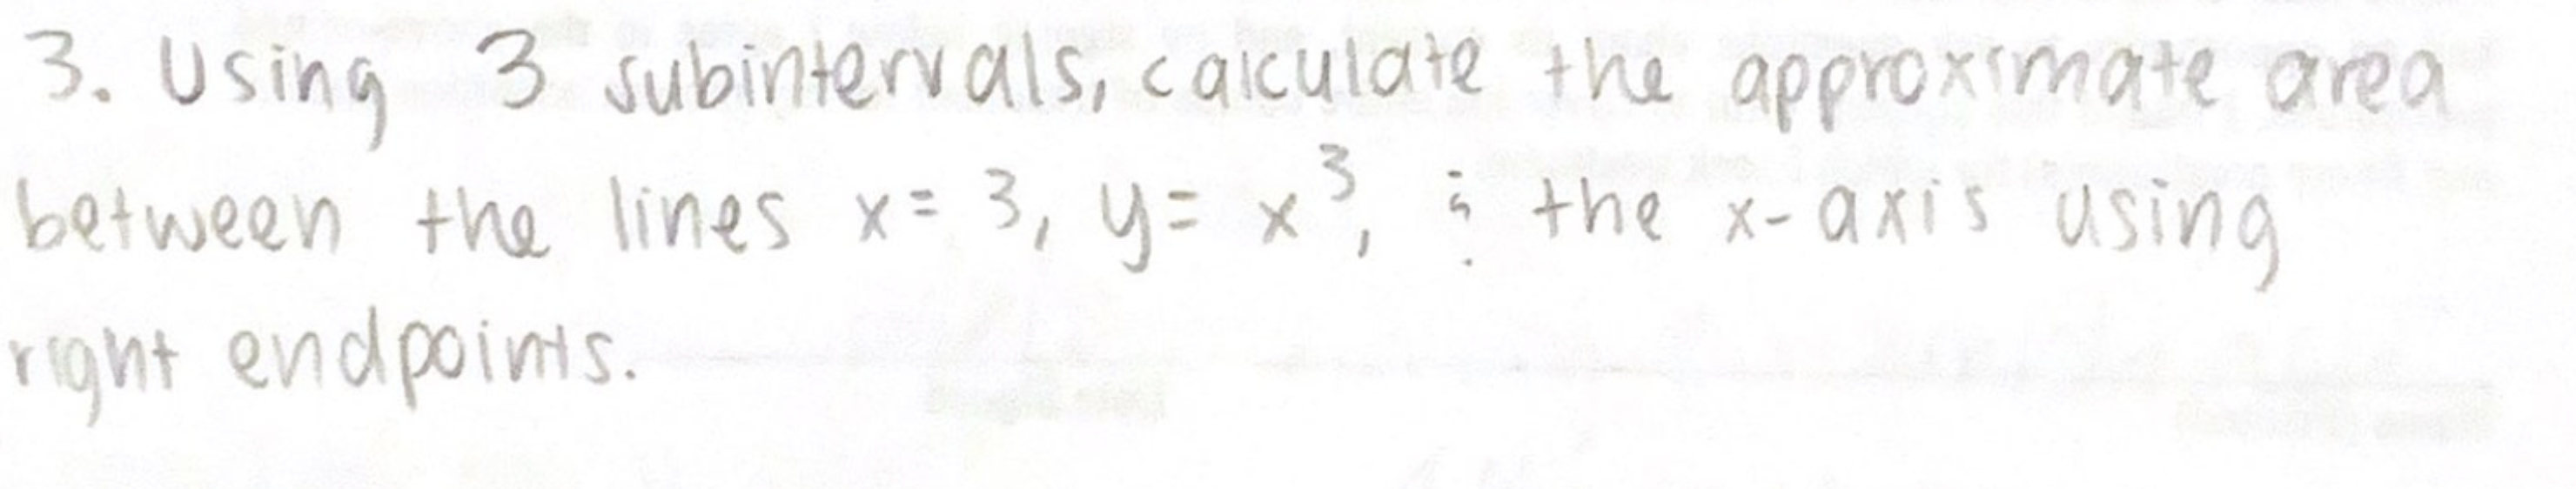 3. Using 3 subintervals, calculate the approximate area
between the lines x= 3, y= x³, & the x-axis using
right endpoints.